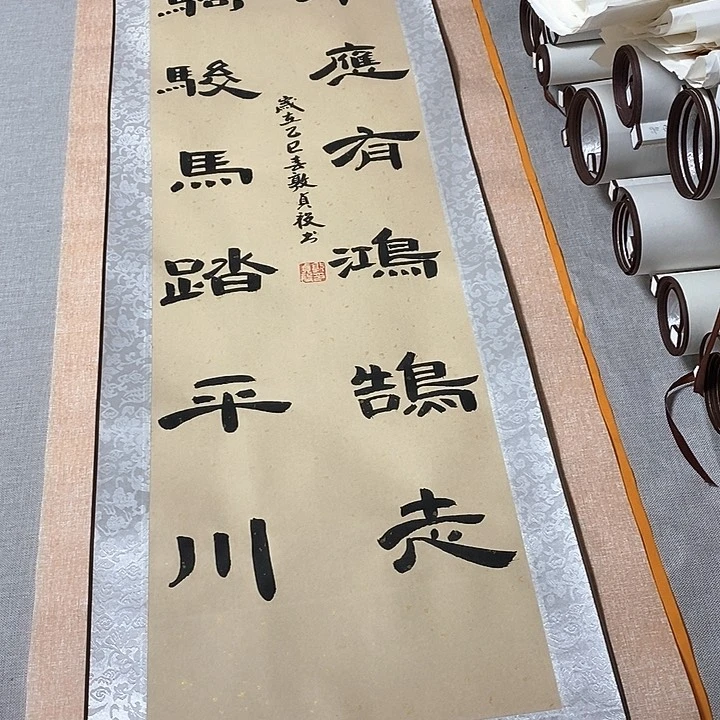 應有鴻鵠志
騎駿馬踏平川
歲在乙巳春敦貞书